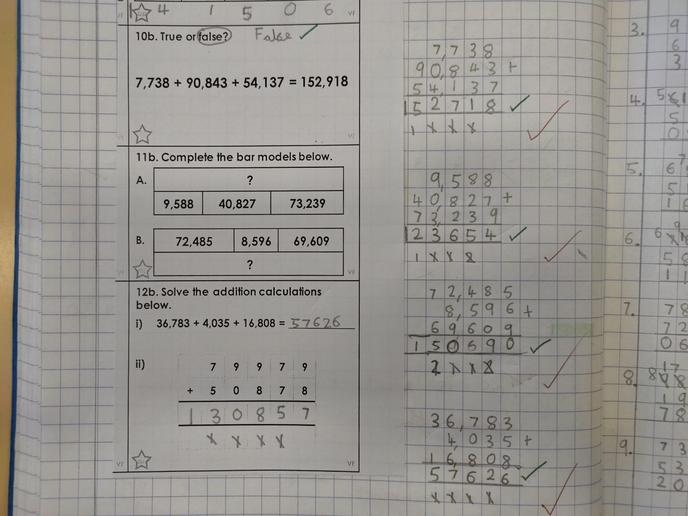 4 1 5 0 6
10b. True or false? False
7,738 + 90,843 + 54,137 = 152,918
11b. Complete the bar models below.
A.
?
9,588 40,827 73,239
B.
72,485 8,596 69,609
?
12b. Solve the addition calculations
below.
i) 36,783 + 4,035 + 16,808 = 57626
ii)
7 9 9 7 9
+ 5 0 8 7 8
1 3 0 8 5 7
7,738
90,843+
54,137
152718
9,588
40,827+
73,239
123654
72,485
8,596+
69609
150690
36,783
4,035+
16,808
57626
3. 9
6
3
4.
5
0
5. 6
5
6.
7. 78
72
06
8.
19
78
9. 73
53
20